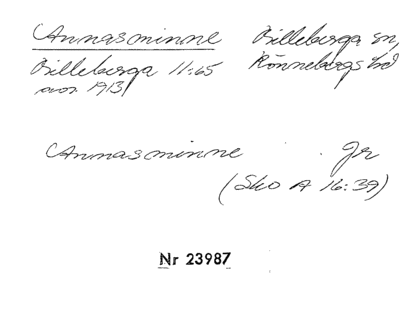 Annasminne Billeberga sn,
Billeberga 11:65 Rönnebergs hd
avs. 1931
Annasminne Gr
(Sko A 16:39)
Nr 23987